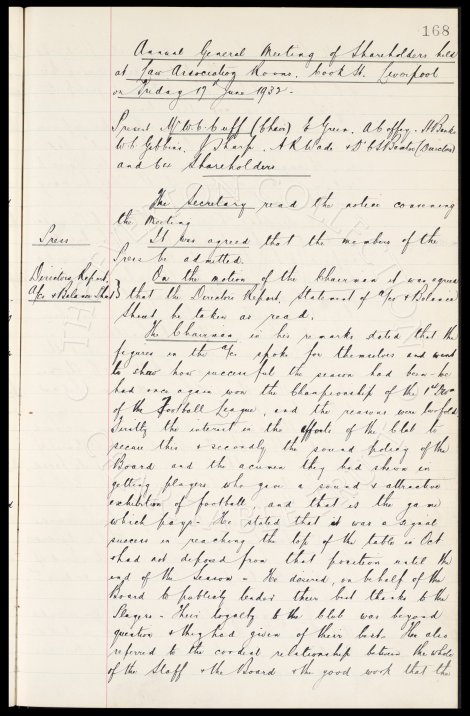 168
Annual General Meeting of Shareholders held
at Law Association Rooms, Cook St. Liverpool
on Friday 17th June 1932.
Present Mr W. C. Cuff (Chair) E Green, A Coffey, H Banks
W. C. Gibbins, J Sharp, A R Wade & Dr C S Baxter (Directors)
and Shareholders
The Secretary read the notice convening
the Meeting
Press
It was agreed that the members of the
Press be admitted.
Directors Report,
a/cs & Balance Sheet }
On the motion of the Chairman it was agreed
that the Directors Report, Statement of a/cs & Balance
Sheet be taken as read.
The Chairman in his remarks stated that the
figures in the a/c. spoke for themselves and went
to show how successful the season had been - we
had once again won the Championship of the 1st Divn
of the Football League, and the reasons were twofold
Firstly the interest in the efforts of the Club to
secure this & secondly the sound policy of the
Board and the acumen they had shewn in
getting players who give a sound & attractive
exhibition of football, and that is the game
which pays - He stated that it was a signal
success in reaching the top of the table in Oct
& had not deposed from that position until the
end of the Season - He desired, on behalf of the
Board to publicly tender their best thanks to the
Players - Their loyalty to the Club was beyond
question & they had given of their best. He also
referred to the cordial relationship between the whole
of the Staff & the Board & the good work that the